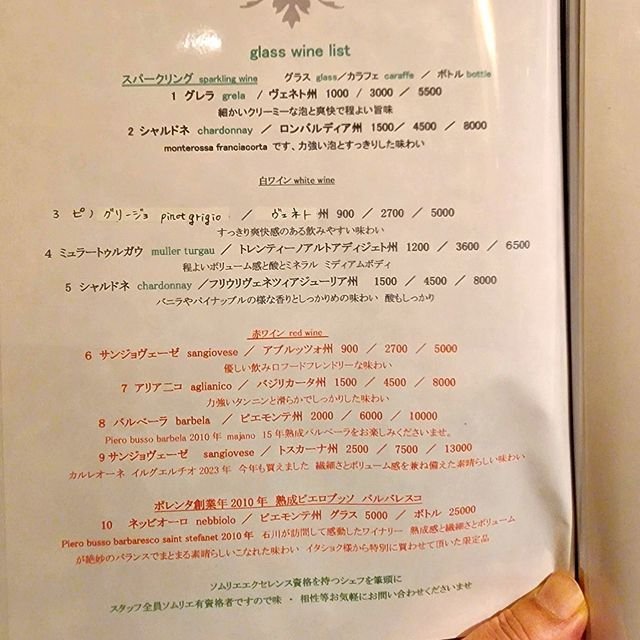 glass wine list
スパークリング sparkling wine グラス glass／カラフェ caraffe ／ ボトル bottle
1 グレラ grela ／ ヴェネト州 1000 ／ 3000 ／ 5500
細かいクリーミーな泡と爽快で程よい旨味
2 シャルドネ chardonnay ／ ロンバルディア州 1500／ 4500 ／ 8000
monterossa franciacorta です、力強い泡とすっきりした味わい
白ワイン white wine
3 ピノグリージョ pinot grigio ／ ヴェネト 州 900 ／ 2700 ／ 5000
すっきり爽快感のある飲みやすい味わい
4 ミュラートゥルガウ muller turgau ／ トレンティーノアルトアディジェト州 1200 ／ 3600 ／ 6500
程よいボリューム感と酸とミネラル ミディアムボディ
5 シャルドネ chardonnay ／フリウリヴェネツィアジューリア州 1500 ／ 4500 ／ 8000
バニラやパイナップルの様な香りとしっかりめの味わい 酸もしっかり
赤ワイン red wine
6 サンジョヴェーゼ sangiovese ／ アブルッツォ州 900 ／ 2700 ／ 5000
優しい飲み口フードフレンドリーな味わい
7 アリアニコ aglianico ／ バジリカータ州 1500 ／ 4500 ／ 8000
力強いタンニンと滑らかでしっかりした味わい
8 バルベーラ barbela ／ ピエモンテ州 2000 ／ 6000 ／ 10000
Piero busso barbela 2010 年 majano 15 年熟成バルベーラをお楽しみくださいませ。
9 サンジョヴェーゼ sangiovese ／ トスカーナ州 2500 ／ 7500 ／ 13000
カルレオーネ イルグエルチオ 2023 年 今年も買えました 繊細さとボリューム感を兼ね備えた素晴らしい味わい
ポレンタ創業年 2010 年 熟成ピエロブッソ バルバレスコ
10 ネッビオーロ nebbiolo ／ ピエモンテ州 グラス 5000 ／ ボトル 25000
Piero busso barbaresco saint stefanet 2010 年 石川が訪問して感動したワイナリー 熟成感と繊細さとボリューム
が絶妙のバランスでまとまる素晴らしいこなれた味わい イタショク様から特別に買わせて頂いた限定品
ソムリエエクセレンス資格を持つシェフを筆頭に
スタッフ全員ソムリエ有資格者ですので味 ・ 相性等お気軽にお問い合わせくださいませ